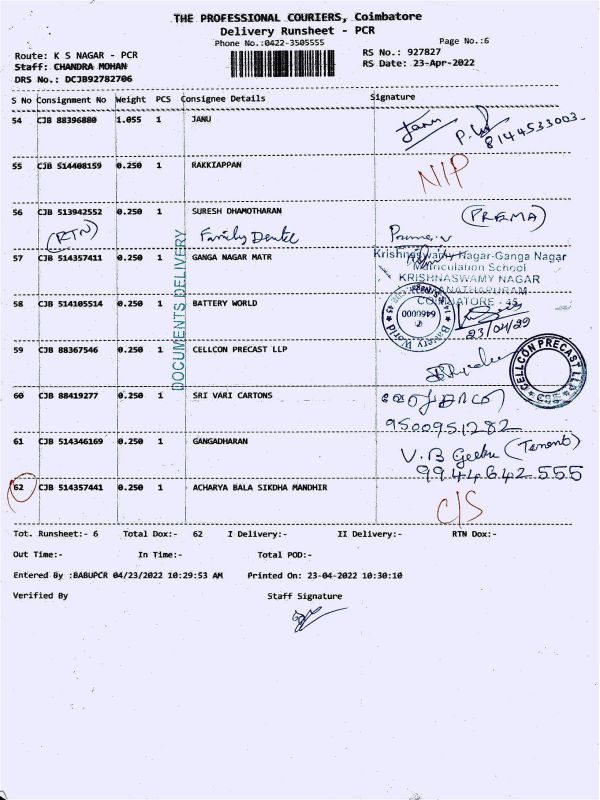 THE PROFESSIONAL COURIERS, Coimbatore
Delivery Runsheet - PCR
Phone No.:0422-3505555
Page No.:6
Route: K S NAGAR - PCR
RS No.: 927827
Staff: CHANDRA MOHAN
RS Date: 23-Apr-2022
DRS No.: DCJB92782706
S No Consignment No Weight PCS Consignee Details Signature
54 CJB 88396880 1.055 1 JANU Janu
8144533003
55 CJB 514408159 0.250 1 RAKKIAPPAN N/P
56 CJB 513942552 0.250 1 SURESH DHAMOTHARAN (PREMA)
(RTN) Family Dental
57 CJB 514357411 0.250 1 GANGA NAGAR MATR
Krishnaswamy Nagar-Ganga Nagar
Matriculation School
KRISHNASWAMY NAGAR
COIMBATORE - 45
DOCUMENTS DELIVERY
58 CJB 514105514 0.250 1 BATTERY WORLD
6460000
23/04/22
59 CJB 88367546 0.250 1 CELLCON PRECAST LLP
CELLCON PRECAST LLP
CBE
60 CJB 88419277 0.250 1 SRI VARI CARTONS
9500951282
61 CJB 514346169 0.250 1 GANGADHARAN
V.B Geetha (Tenant)
9944642555
62 CJB 514357441 0.250 1 ACHARYA BALA SIKDHA MANDHIR C/S
Tot. Runsheet:- 6 Total Dox:- 62 I Delivery:- II Delivery:- RTN Dox:-
Out Time:- In Time:- Total POD:-
Entered By :BABUPCR 04/23/2022 10:29:53 AM Printed On: 23-04-2022 10:30:10
Verified By Staff Signature